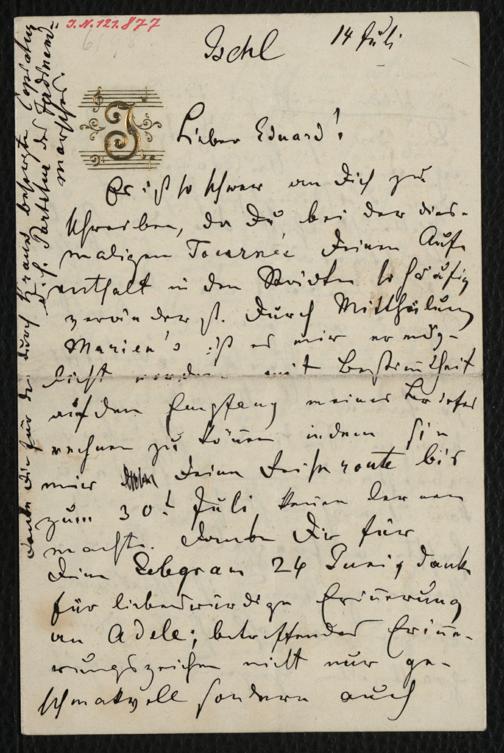 J.N. 121.877
Ischl 14 Juli
J
Lieber Eduard!
Es ist so schwer an Dich zu
schreiben, da Du bei der dies-
maligen Tournée Deinen Auf-
enthalt in den Städten so häufig
veränderst. Durch Mittheilung
Marien's ist es mir ermög-
licht worden mit Bestimtheit
auf den Empfang meines Briefes
rechnen zu können indem sie
mir Deine Reiseroute bis
zum 30t Juli kennen lernen
machte. Danke Dir für
Dein Telegram 24 Juni, Dank
für liebenswürdige Erinerung
an Adele; betreffendes Erine-
rungszeichen nicht nur ge-
schmakvoll sondern auch
Danke Dir für die durch Kraus besorgte Copiatur
d. h. Partitur des Ferdinand-
marsches